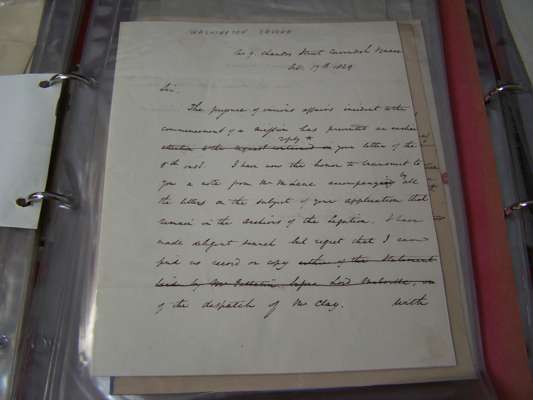 WASHINGTON IRVING
No 9. Chandos Street Cavendish Square
Oct. 17th. 1829
Sir,
The pressure of various affairs incident to the
commencement of a mission has prevented an earlier
attention to the request contained in your letter of the
reply to
8th inst. I have now the honor to transmit to
you a note from Mr McLane accompanying all
by
the letters on the subject of your application that
remain in the archives of the Legation. I have
made diligent search but regret that I can
find no record or copy either of the Statement
laid by Mr Gallatin before Lord Melville, or
of the despatch of Mr Clay. with